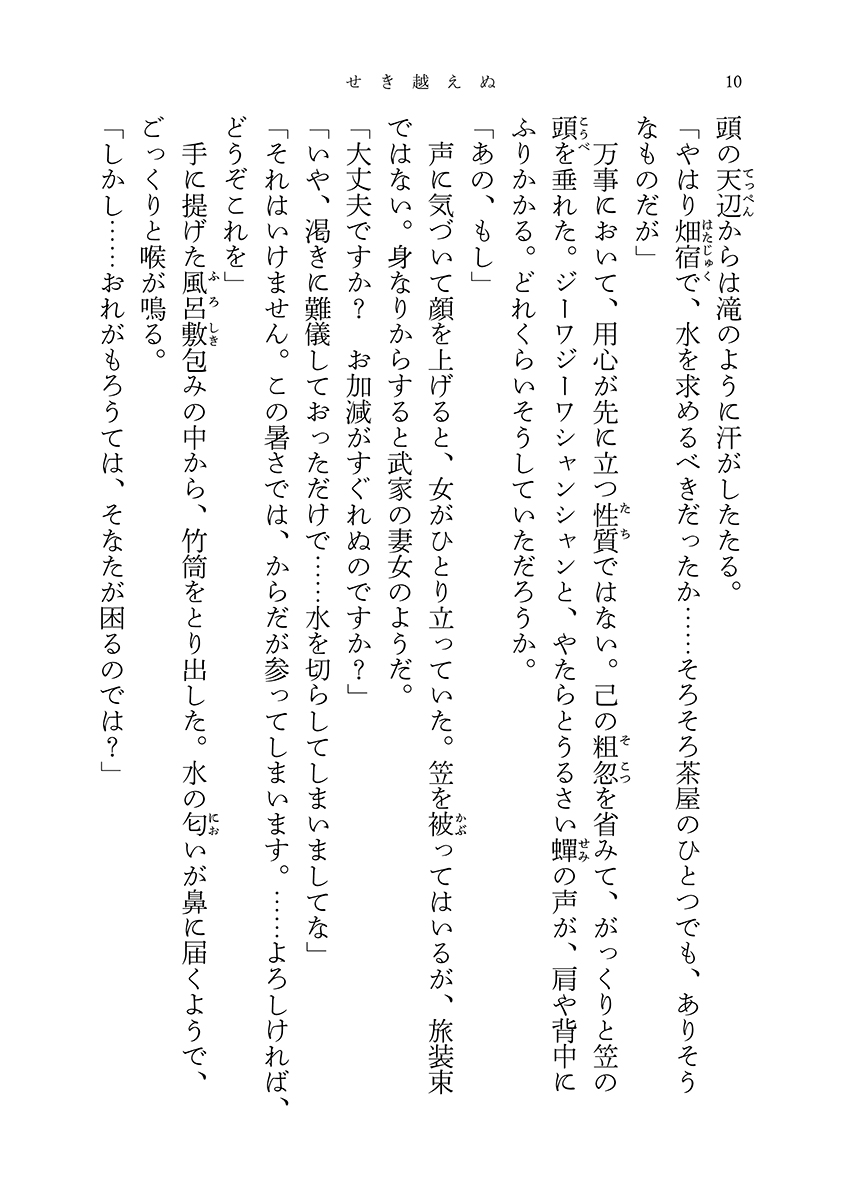 せき越えぬ
10
頭の天辺からは滝のように汗がしたたる。
「やはり畑宿で、水を求めるべきだったか……そろそろ茶屋のひとつでも、ありそう
なものだが」
万事において、用心が先に立つ性質ではない。己の粗忽を省みて、がっくりと笠の
頭を垂れた。ジーワジーワシャンシャンと、やたらとうるさい蟬の声が、肩や背中に
ふりかかる。どれくらいそうしていただろうか。
「あの、もし」
声に気づいて顔を上げると、女がひとり立っていた。笠を被ってはいるが、旅装束
ではない。身なりからすると武家の妻女のようだ。
「大丈夫ですか？　お加減がすぐれぬのですか？」
「いや、渇きに難儀しておっただけで……水を切らしてしまいましてな」
「それはいけません。この暑さでは、からだが参ってしまいます。……よろしければ、
どうぞこれを」
手に提げた風呂敷包みの中から、竹筒をとり出した。水の匂いが鼻に届くようで、
ごっくりと喉が鳴る。
「しかし……おれがもろうては、そなたが困るのでは？」